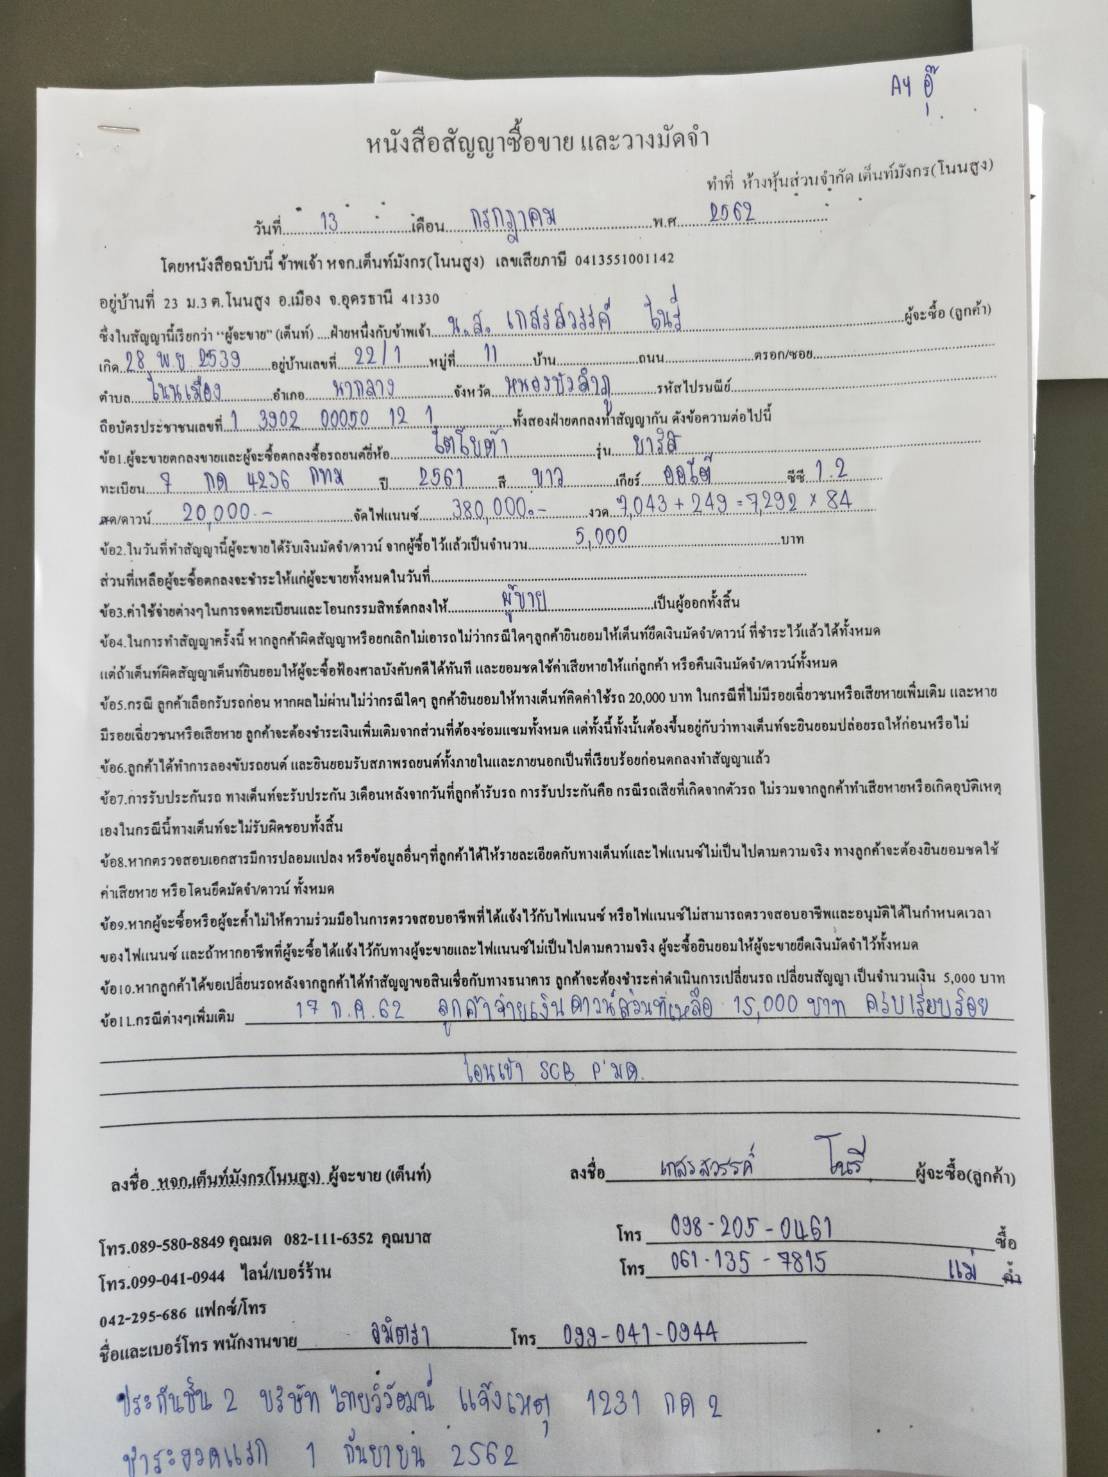 A4 อุ๊
หนังสือสัญญาซื้อขาย และวางมัดจำ
ทำที่ ห้างหุ้นส่วนจำกัด เต็นท์มังกร(โนนสูง)
วันที่ 13 เดือน กรกฎาคม พ.ศ. 2562
โดยหนังสือฉบับนี้ ข้าพเจ้า หจก.เต็นท์มังกร(โนนสูง) เลขเสียภาษี 0413551001142
อยู่บ้านที่ 23 ม.3 ต.โนนสูง อ.เมือง จ.อุดรธานี 41330
ซึ่งในสัญญานี้เรียกว่า "ผู้จะขาย" (เต็นท์) ...ฝ่ายหนึ่งกับข้าพเจ้า น.ส. เกสรสวรรค์ โนรี ผู้จะซื้อ (ลูกค้า)
เกิด 28 พ.ย. 2539 อยู่บ้านเลขที่ 22/1 หมู่ที่ 11 บ้าน ถนน ตรอก/ซอย
ตำบล โนนเมือง อำเภอ นากลาง จังหวัด หนองบัวลำภู รหัสไปรษณีย์
ถือบัตรประชาชนเลขที่ 1 3902 00050 12 1 ทั้งสองฝ่ายตกลงทำสัญญากัน ดังข้อความต่อไปนี้
ข้อ1.ผู้จะขายตกลงขายและผู้จะซื้อตกลงซื้อรถยนต์ยี่ห้อ โตโยต้า รุ่น ยาริส
ทะเบียน 7 กด 4236 กทม ปี 2561 สี ขาว เกียร์ ออโต้ ซีซี 1.2
สด/ดาวน์ 20,000.- จัดไฟแนนซ์ 380,000.- งวด 7,043 + 249 = 7,292 x 84
ข้อ2.ในวันที่ทำสัญญานี้ผู้จะขายได้รับเงินมัดจำ/ดาวน์ จากผู้ซื้อไว้แล้วเป็นจำนวน 5,000 บาท
ส่วนที่เหลือผู้จะซื้อตกลงจะชำระให้แก่ผู้จะขายทั้งหมดในวันที่
ข้อ3.ค่าใช้จ่ายต่างๆในการจดทะเบียนและโอนกรรมสิทธ์ตกลงให้ ผู้ขาย เป็นผู้ออกทั้งสิ้น
ข้อ4.ในการทำสัญญาครั้งนี้ หากลูกค้าผิดสัญญาหรือยกเลิกไม่เอารถไม่ว่ากรณีใดๆลูกค้ายินยอมให้เต็นท์ยึดเงินมัดจำ/ดาวน์ ที่ชำระไว้แล้วได้ทั้งหมด
แต่ถ้าเต็นท์ผิดสัญญาเต็นท์ยินยอมให้ผู้จะซื้อฟ้องศาลบังคับคดีได้ทันที และยอมชดใช้ค่าเสียหายให้แก่ลูกค้า หรือคืนเงินมัดจำ/ดาวน์ทั้งหมด
ข้อ5.กรณี ลูกค้าเลือกรับรถก่อน หากผลไม่ผ่านไม่ว่ากรณีใดๆ ลูกค้ายินยอมให้ทางเต็นท์คิดค่าใช้รถ 20,000 บาท ในกรณีที่ไม่มีรอยเฉี่ยวชนหรือเสียหายเพิ่มเติม และหาย
มีรอยเฉี่ยวชนหรือเสียหาย ลูกค้าจะต้องชำระเงินเพิ่มเติมจากส่วนที่ต้องซ่อมแซมทั้งหมด แต่ทั้งนี้ทั้งนั้นต้องขึ้นอยู่กับว่าทางเต็นท์จะยินยอมปล่อยรถให้ก่อนหรือไม่
ข้อ6.ลูกค้าได้ทำการลองขับรถยนต์ และยินยอมรับสภาพรถยนต์ทั้งภายในและภายนอกเป็นที่เรียบร้อยก่อนตกลงทำสัญญาแล้ว
ข้อ7.การรับประกันรถ ทางเต็นท์จะรับประกัน 3เดือนหลังจากวันที่ลูกค้ารับรถ การรับประกันคือ กรณีรถเสียที่เกิดจากตัวรถ ไม่รวมจากลูกค้าทำเสียหายหรือเกิดอุบัติเหตุ
เองในกรณีนี้ทางเต็นท์จะไม่รับผิดชอบทั้งสิ้น
ข้อ8.หากตรวจสอบเอกสารมีการปลอมแปลง หรือข้อมูลอื่นๆที่ลูกค้าได้ให้รายละเอียดกับทางเต็นท์และไฟแนนซ์ไม่เป็นไปตามความจริง ทางลูกค้าจะต้องยินยอมชดใช้
ค่าเสียหาย หรือโดนยึดมัดจำ/ดาวน์ ทั้งหมด
ข้อ9.หากผู้จะซื้อหรือผู้จะค้ำไม่ให้ความร่วมมือในการตรวจสอบอาชีพที่ได้แจ้งไว้กับไฟแนนซ์ หรือไฟแนนซ์ไม่สามารถตรวจสอบอาชีพและอนุมัติได้ในกำหนดเวลา
ของไฟแนนซ์ และถ้าหากอาชีพที่ผู้จะซื้อได้แจ้งไว้กับทางผู้จะขายและไฟแนนซ์ไม่เป็นไปตามความจริง ผู้จะซื้อยินยอมให้ผู้จะขายยึดเงินมัดจำไว้ทั้งหมด
ข้อ10.หากลูกค้าได้ขอเปลี่ยนรถหลังจากลูกค้าได้ทำสัญญาขอสินเชื่อกับทางธนาคาร ลูกค้าจะต้องชำระค่าดำเนินการเปลี่ยนรถ เปลี่ยนสัญญา เป็นจำนวนเงิน 5,000 บาท
ข้อ11.กรณีต่างๆเพิ่มเติม 17 ก.ค. 62 ลูกค้าจ่ายเงินดาวน์ส่วนที่เหลือ 15,000 บาท ครบเรียบร้อย
โอนเข้า SCB P'มด.
ลงชื่อ หจก.เต็นท์มังกร(โนนสูง) ผู้จะขาย (เต็นท์) ลงชื่อ เกสรสวรรค์ โนรี ผู้จะซื้อ(ลูกค้า)
โทร.089-580-8849 คุณมด 082-111-6352 คุณบาส โทร 098-205-0461 ซื้อ
โทร.099-041-0944 ไลน์/เบอร์ร้าน โทร 061-135-7815 แม่ ค้ำ
042-295-686 แฟกซ์/โทร
ชื่อและเบอร์โทร พนักงานขาย โทร 099-041-0944
ประกันชั้น 2 บริษัท ไทยวิวัฒน์ แจ้งเหตุ 1231 กด 2
ชำระงวดแรก 1 กันยายน 2562